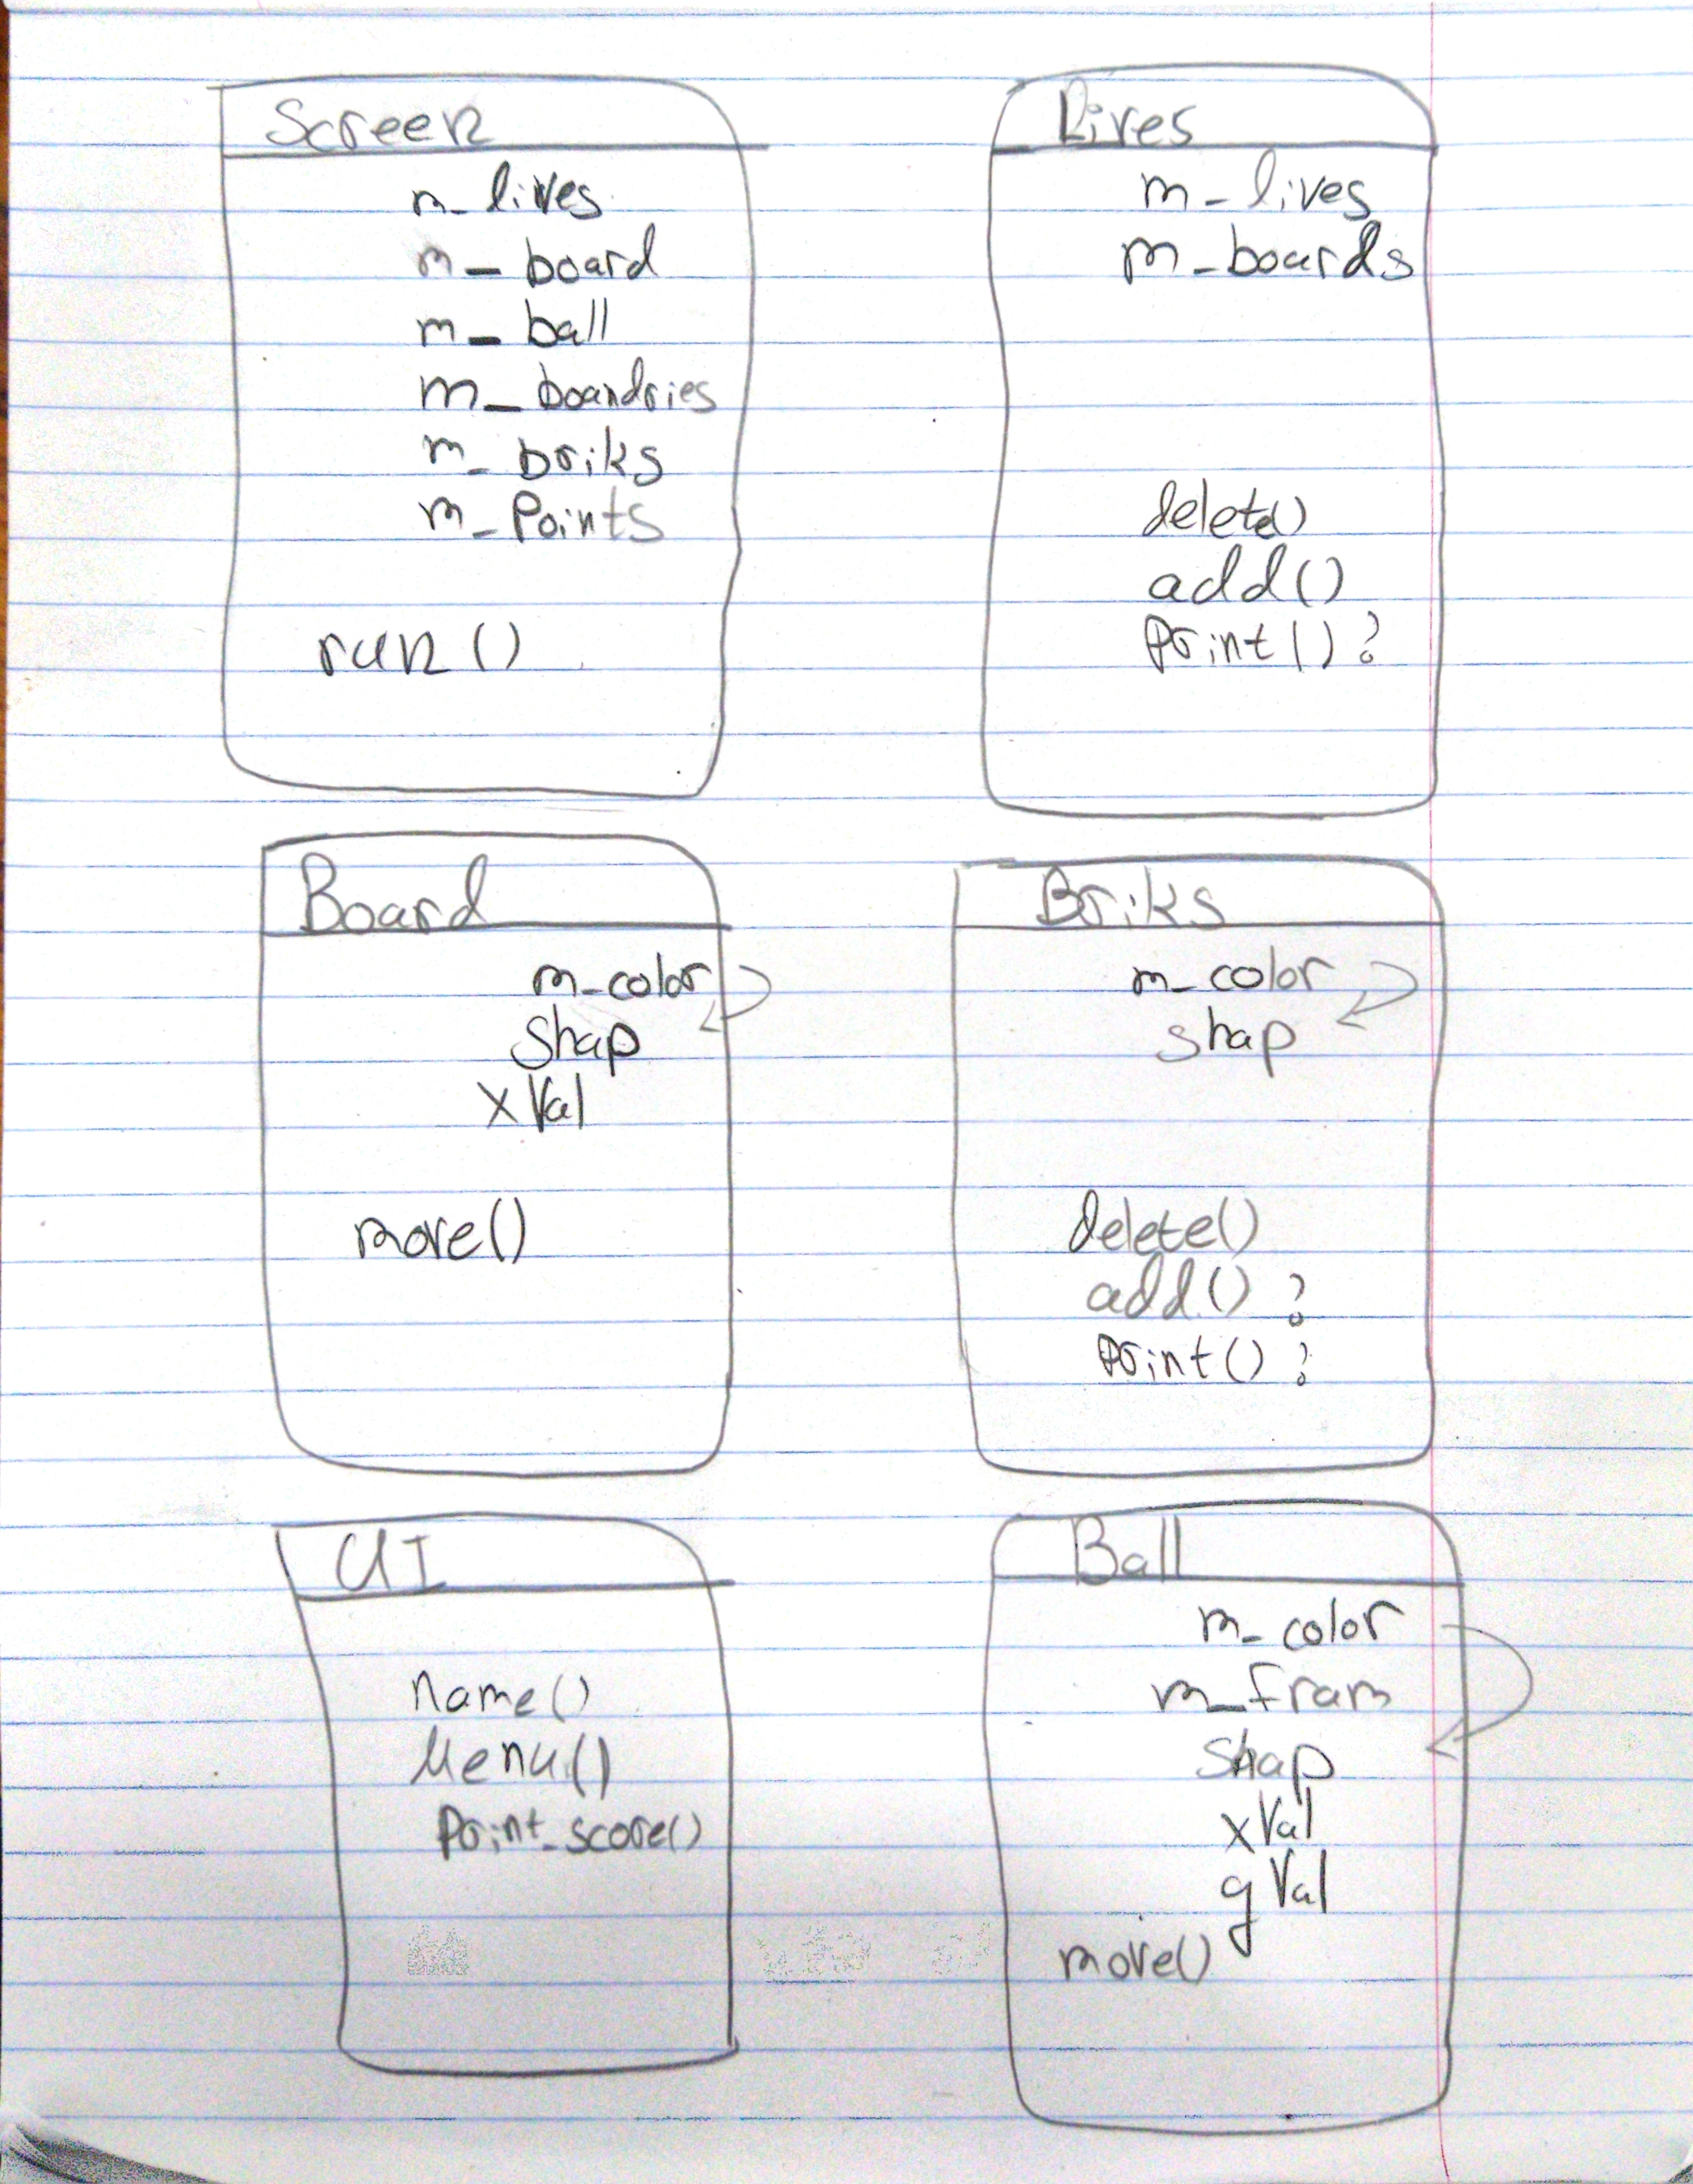 Screen
m_lives
m_board
m_ball
m_boandries
m_briks
m_Points
run()
Lives
m_lives
m_boards
delete()
add()
Print()?
Board
m_color
Shap
xVal
move()
Briks
m_color
shap
delete()
add()?
Print()?
UI
Name()
Menu()
Print_score()
Ball
m_color
m_fram
Shap
xVal
yVal
move()